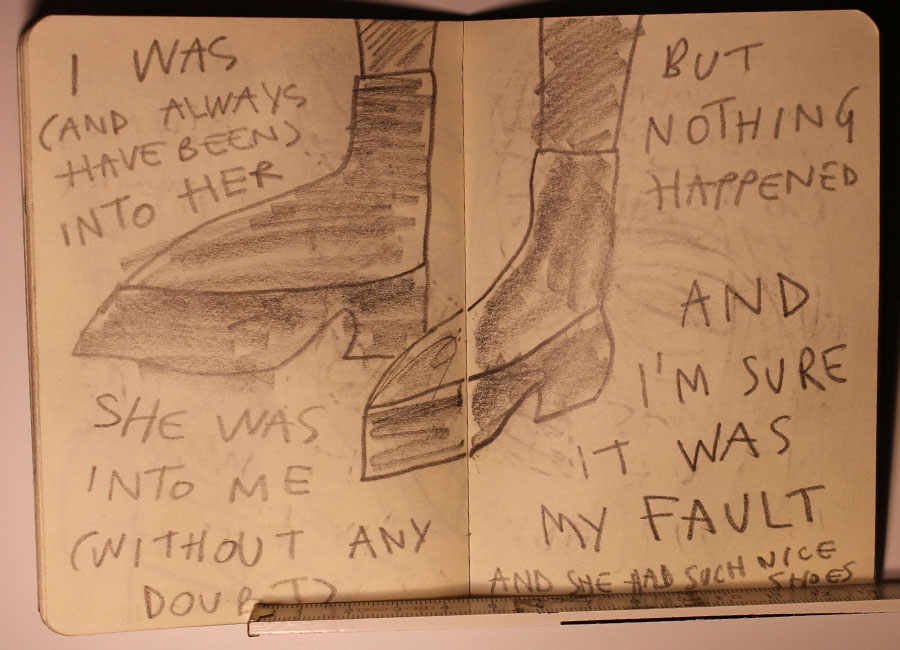 I WAS
(AND ALWAYS
HAVE BEEN)
INTO HER
SHE WAS
INTO ME
(WITHOUT ANY
DOUBT)
BUT
NOTHING
HAPPENED
AND
I'M SURE
IT WAS
MY FAULT
AND SHE HAD SUCH NICE
SHOES